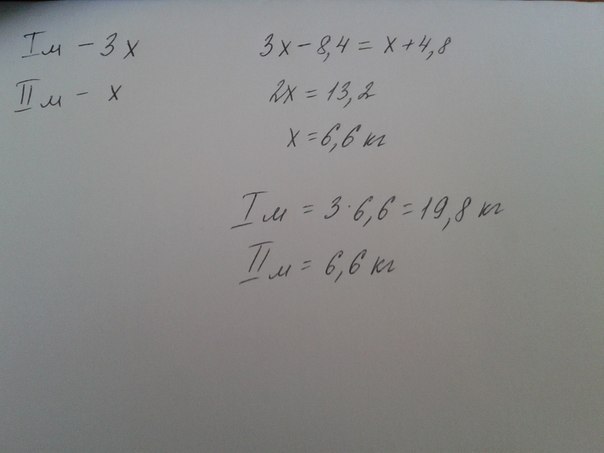 I м - 3x
II м - x
3x - 8,4 = x + 4,8
2x = 13,2
x = 6,6 кг
I м = 3 · 6,6 = 19,8 кг
II м = 6,6 кг